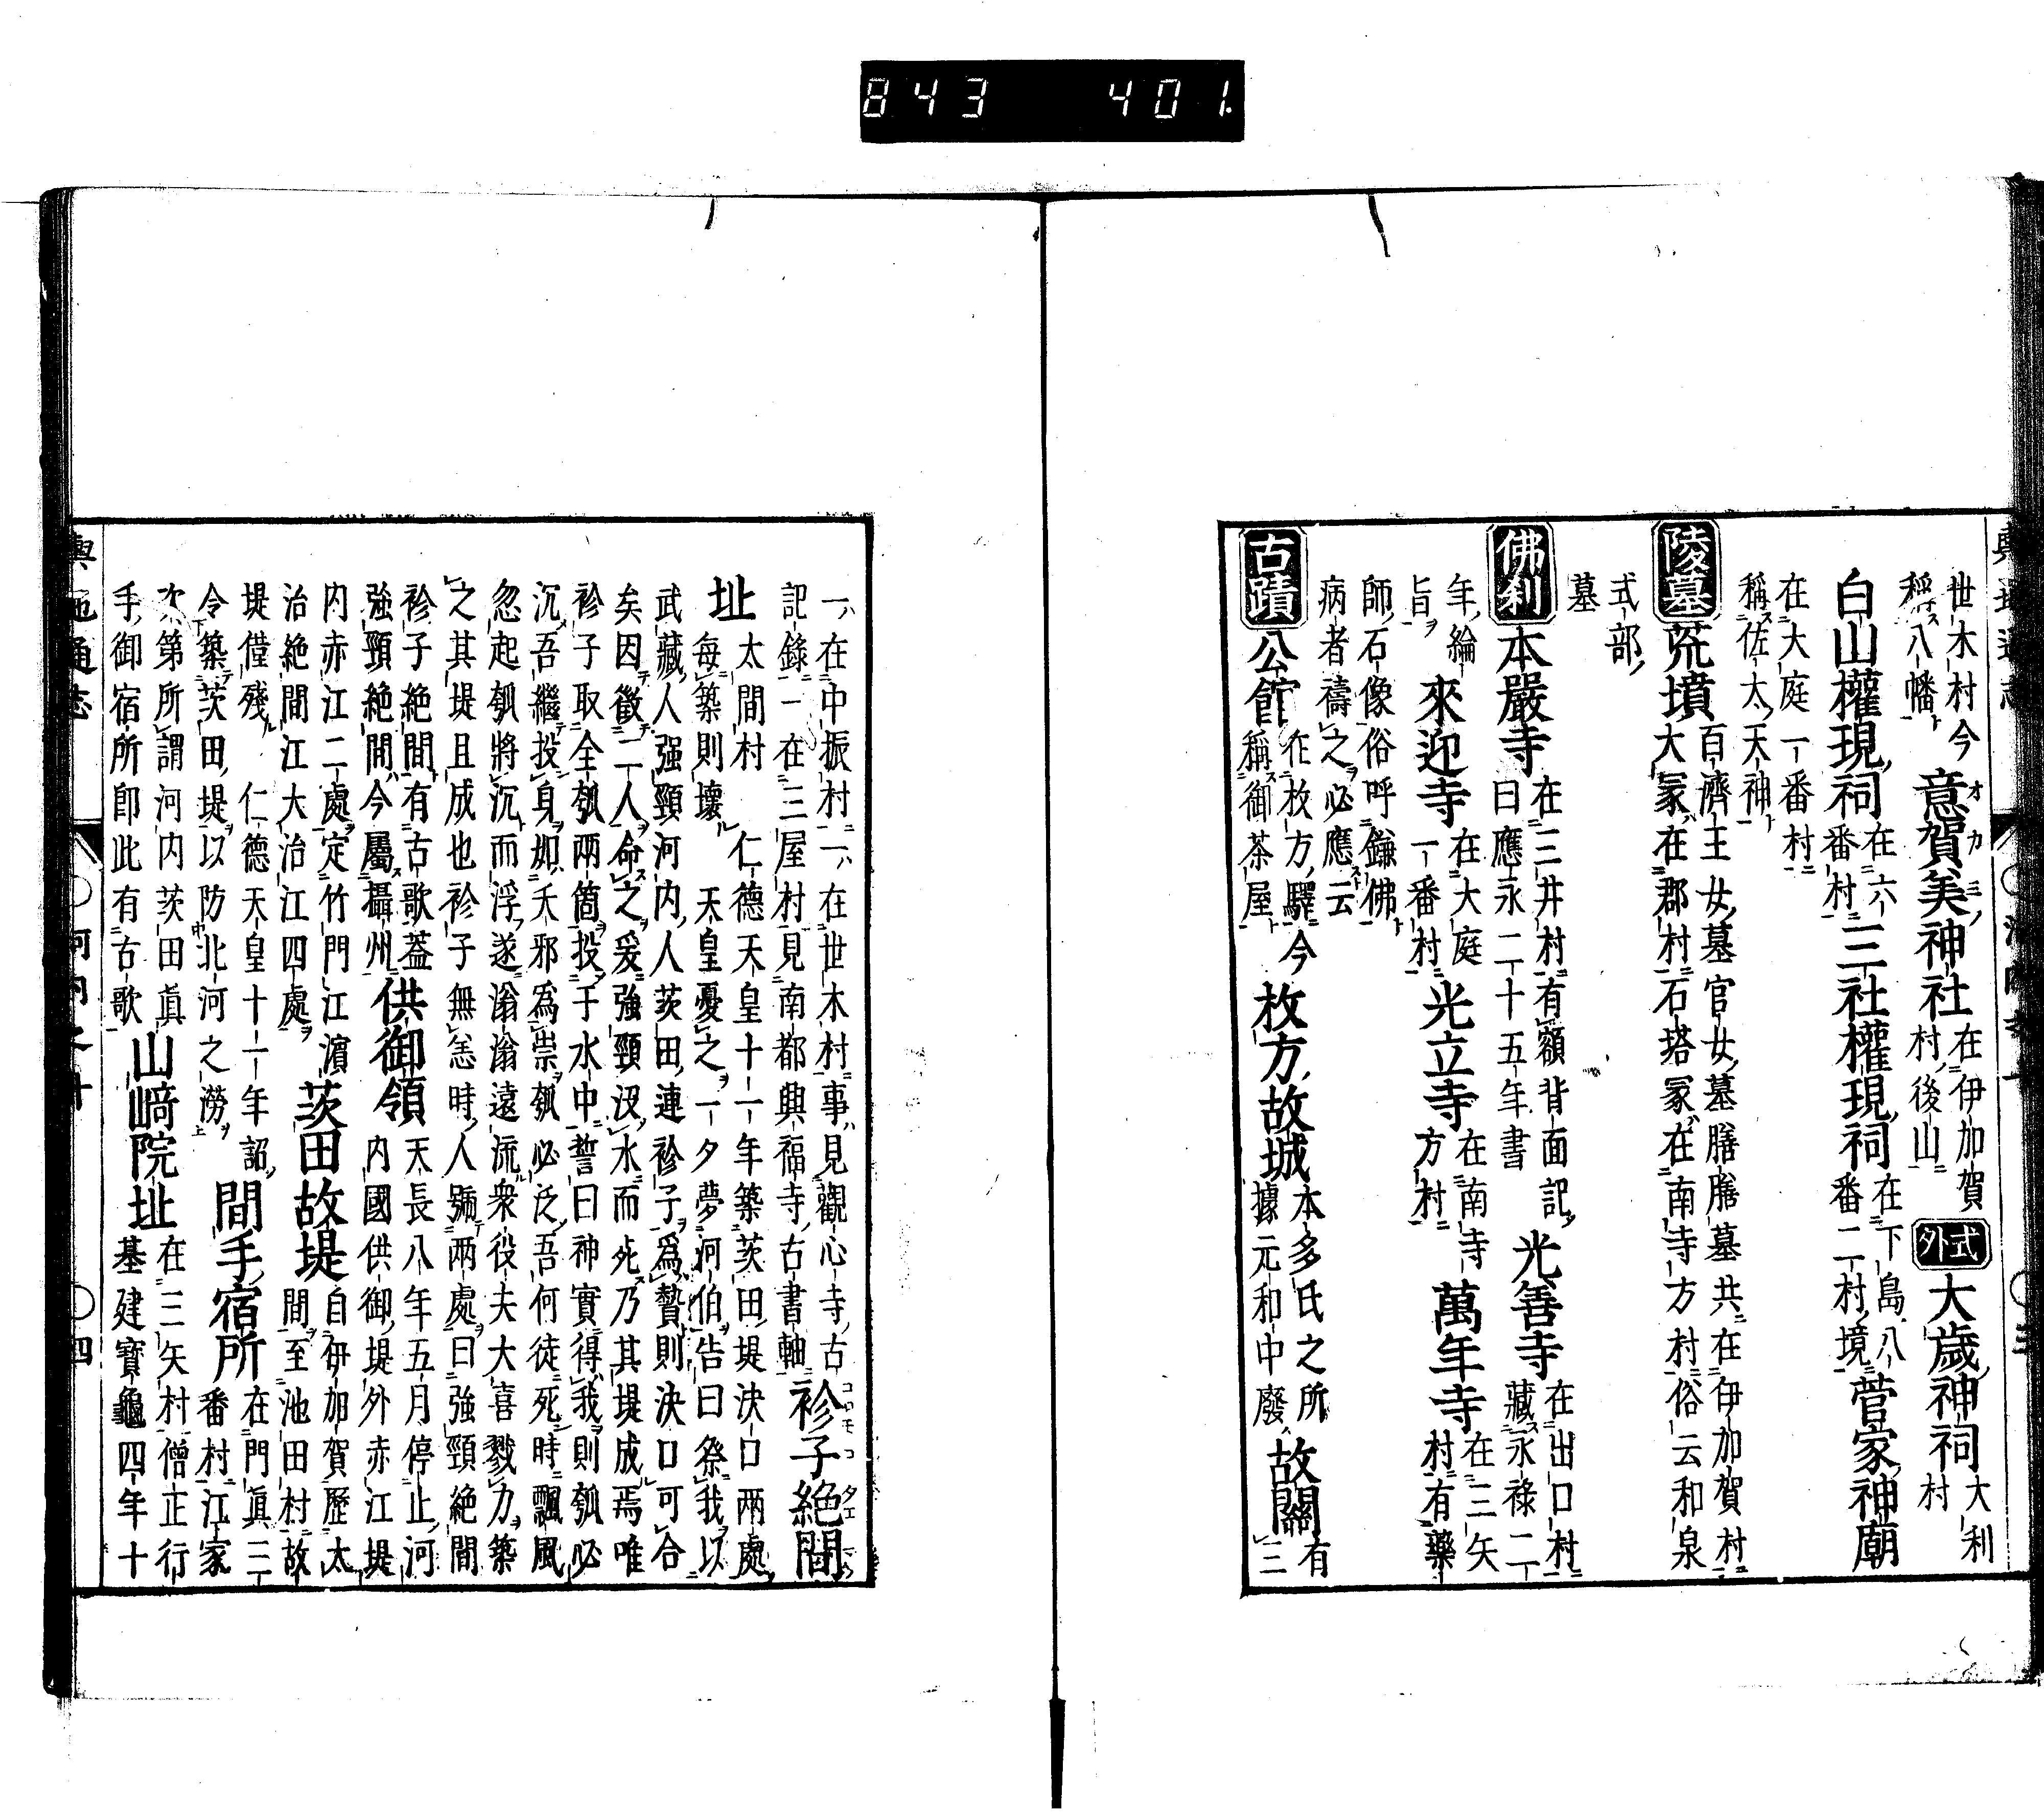 843 401
世木村今
稱八幡
意賀美神社
オカミノ
在伊加賀
村後山
式外
大歳神祠
大利
村
白山權現祠
在六
番村
三社權現祠
在下島八
番二村境
菅家神廟
在大庭一番村
稱佐太天神
陵墓
荒墳
百濟王女墓官女墓膳膳墓共在伊加賀村
大冢在郡村石塔冢在南寺方村俗云和泉
式部
墓
佛刹
本嚴寺
在三井村有額背面記
曰應永二十五年書
光善寺
在出口村
藏永祿二
年綸
旨
來迎寺
在大庭
一番村
光立寺
在南寺
方村
萬年寺
在三矢
村有藥
師石像俗呼鎌佛
病者禱之必應云
古蹟
公館
在枚方驛今
稱御茶屋
枚方故城
本多氏之所
據元和中廢
故關
有
三
一在中振村一在世木村事見觀心寺古
記錄一在三屋村見南都興福寺古書軸
衫子絶間
コロモコ タエマ
址
太間村 仁德天皇十一年築茨田堤決口兩處
每築則壞 天皇憂之一夕夢河伯告曰祭我以
武藏人强頸河内人茨田連衫子爲贄則決口可合
矣因徵二人命之爰強頸沒水而死乃其堤成焉唯
衫子取全匏兩箇投于水中誓曰神實得我則匏必
沉吾繼投身如夭邪爲祟匏必泛吾何徒死時飄風
忽起匏將沉而浮遂滃滃遠流衆役夫大喜戮力築
之其堤且成也衫子無恙時人號兩處曰強頸絶間
衫子絶間有古歌葢
強頸絶間今屬攝州
供御領
天長八年五月停止河
内國供御堤外赤江堤
内赤江二處定竹門江濱
治絶間江大治江四處
茨田故堤
自伊加賀歷太
間至池田村故
堤僅殘 仁德天皇十一年詔
令築茨田堤以防北河之澇
間手宿所
在門眞三
番村江家
次第所謂河内茨田眞
手御宿所卽此有古歌
山﨑院址
在三矢村僧正行
基建寶龜四年十
輿地通志
〇河内之十
〇四